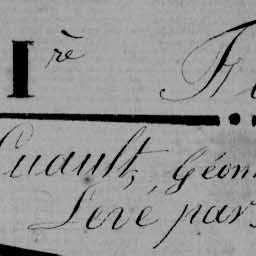 I re Fe
Cuault, Géom
Levé par